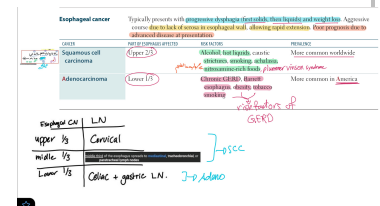 Esophageal cancer
Typically presents with progressive dysphagia (first solids, then liquids) and weight loss. Aggressive
course due to lack of serosa in esophageal wall, allowing rapid extension. Poor prognosis due to
advanced disease at presentation.
CANCER PART OF ESOPHAGUS AFFECTED RISK FACTORS PREVALENCE
Squamous cell carcinoma Upper 2/3 Alcohol, hot liquids, caustic strictures, smoking, achalasia, nitrosamine-rich foods More common worldwide
Plummer vinson syndrome
Adenocarcinoma Lower 1/3 Chronic GERD, Barrett esophagus, obesity, tobacco smoking More common in America
risk factors of
GERD
Esophageal CN LN
upper 1/3 Cervical
middle 1/3
→ SCC
Lower 1/3 Celiac + gastric LN. → Adeno